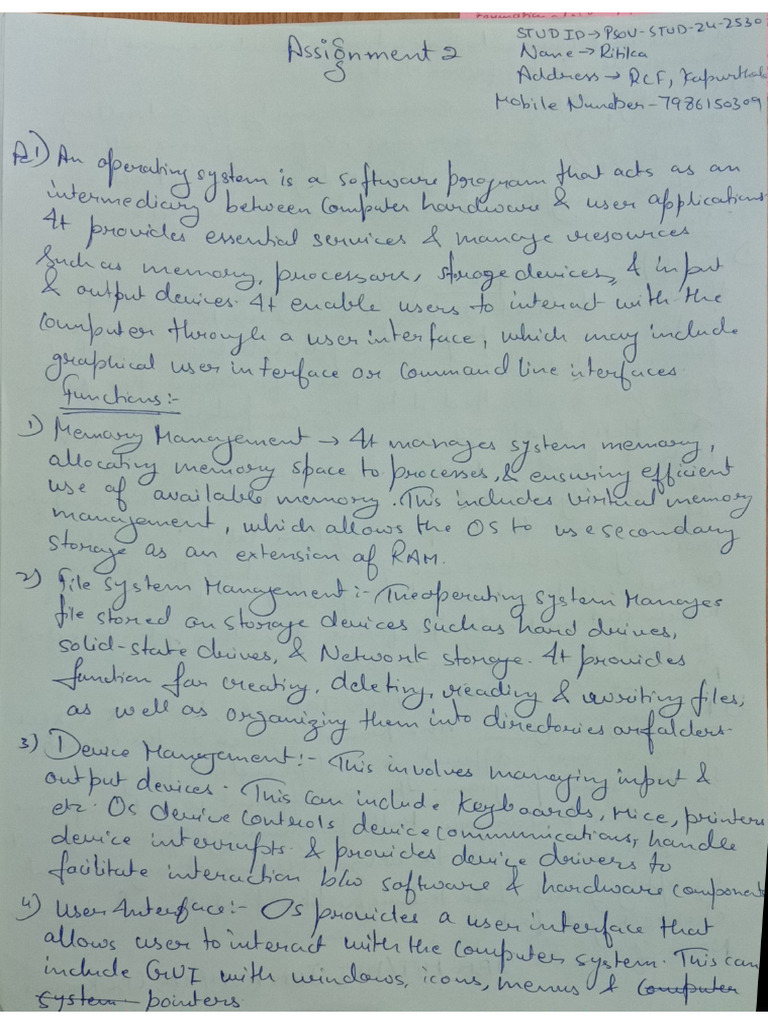 Assignment 2
STUD ID → PSOU-STUD-24-2530
Name → Ritika
Address → RCF, Kapurthala
Mobile Number - 7986150309
A1) An operating system is a software program that acts as an
intermediary between computer hardware & user applications
It provides essential services & manage resources
Such as memory, processors, storage devices, & input
& output devices. It enable users to interact with the
computer through a user interface, which may include
graphical user interface or command line interfaces.
Functions:-
1) Memory Management → It manages system memory,
allocating memory space to processes, & ensuring efficient
use of available memory. This includes virtual memory
management, which allows the OS to use secondary
storage as an extension of RAM.
2) File system Management :- The operating system Manages
file stored on storage devices such as hard drives,
solid-state drives, & Network storage. It provides
function for creating, deleting, reading & writing files,
as well as organizing them into directories or folders.
3) Device Management:- This involves managing input &
output devices. This can include keyboards, mice, printers
etc. Os device controls device communications, handle
device interrupts & provides device drivers to
facilitate interaction b/w software & hardware component
4) User Interface:- Os provides a user interface that
allows user to interact with the computer system. This can
include GUI with windows, icons, menus & computer
system pointers